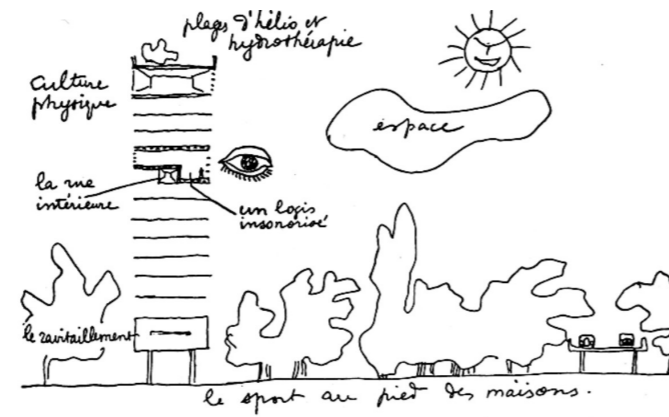 plages d'hélio et
hydrothérapie
culture
physique
espace
la rue
intérieure
un logis
insonorisé
le ravitaillement
le sport au pied des maisons.